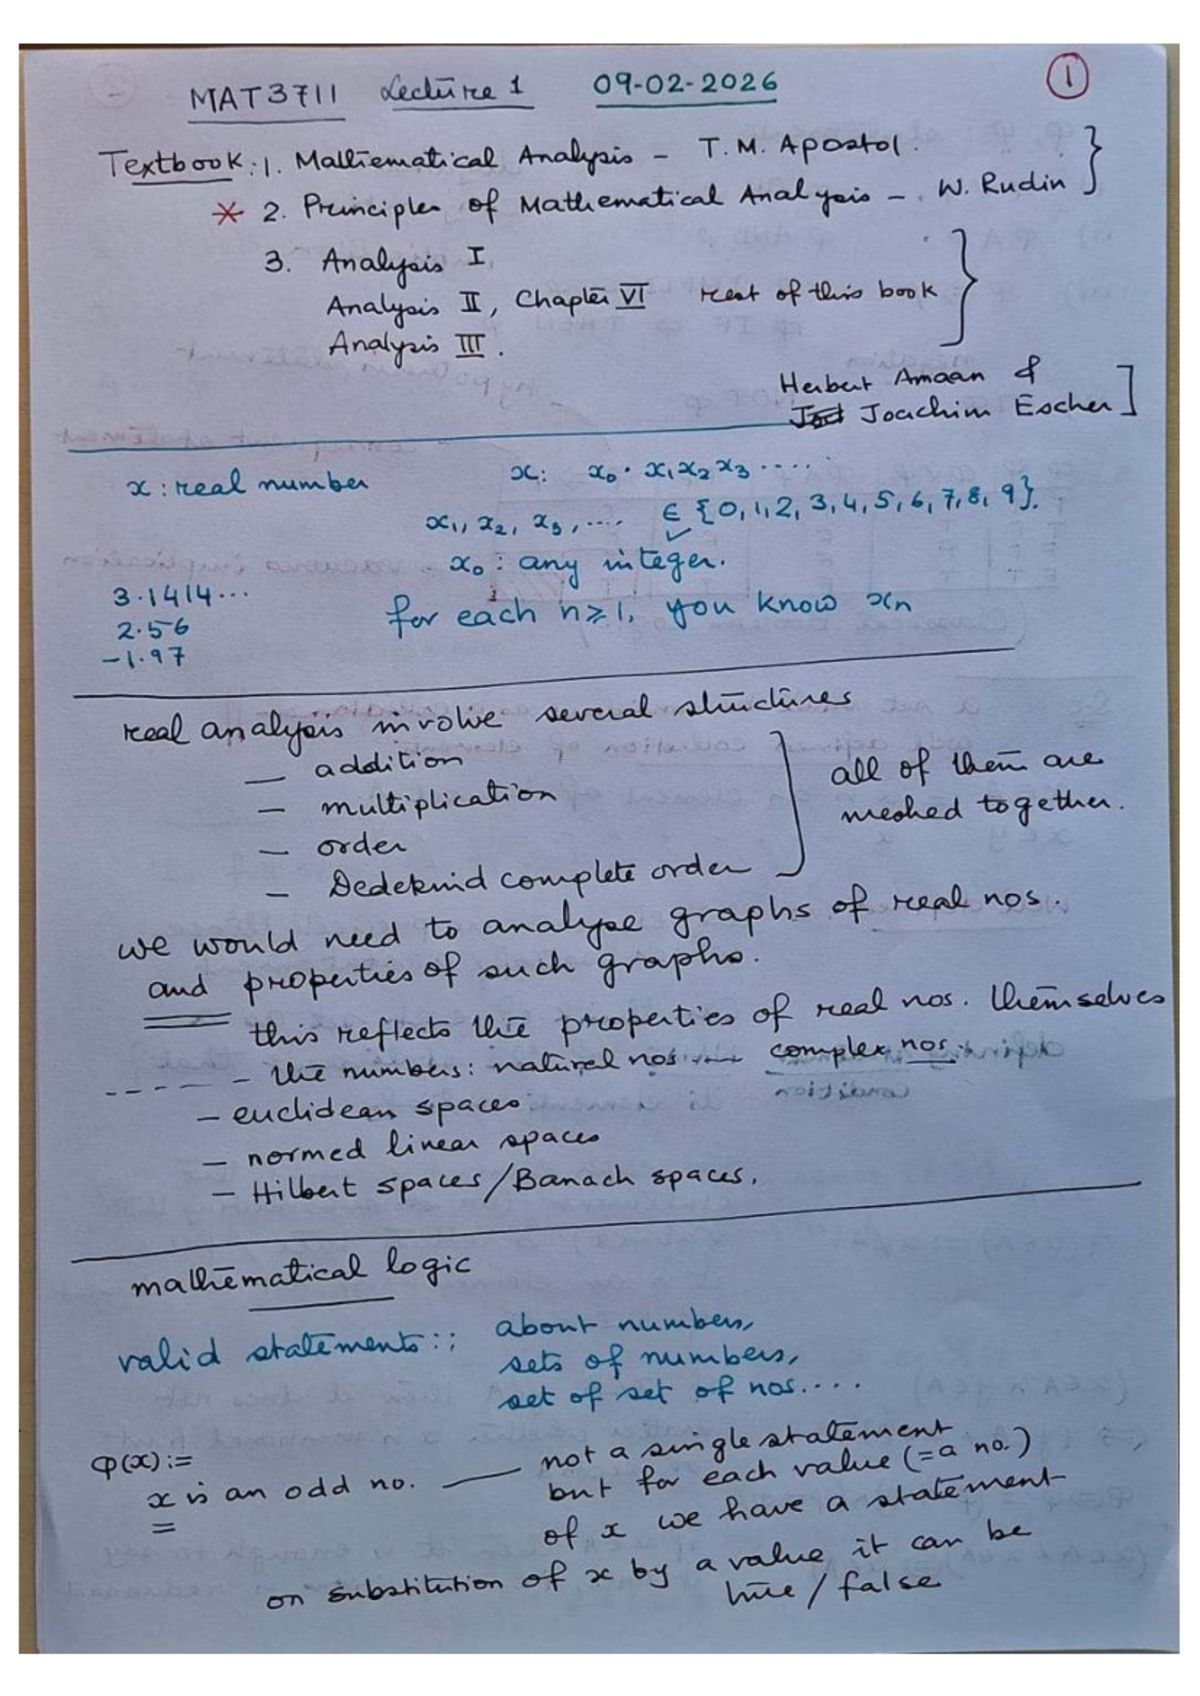 MAT3711 Lecture 1 09-02-2026 1
Textbook: 1. Mathematical Analysis - T.M. Apostol.
* 2. Principles of Mathematical Analysis - W. Rudin
3. Analysis I
Analysis II, Chapter VI rest of this book
Analysis III.
Herbert Amaan &
Joachim Escher
x: real number x: x₀.x₁x₂x₃.....
x₁, x₂, x₃, .... ∈ {0,1,2,3,4,5,6,7,8,9}.
x₀: any integer.
3.1414... for each n≥1, you know xn
2.56
-1.97
real analysis involve several structures
— addition
— multiplication
— order
— Dedekind complete order
all of them are
meshed together.
we would need to analyse graphs of real nos.
and properties of such graphs.
this reflects the properties of real nos. themselves
---- - the numbers: natural nos ---- complex nos.
- euclidean spaces
- normed linear spaces
- Hilbert spaces/Banach spaces.
mathematical logic
valid statements:: about numbers,
sets of numbers,
set of set of nos....
φ(x):=
x is an odd no. —— not a single statement
but for each value (=a no.)
of x we have a statement
on substitution of x by a value it can be
true/false